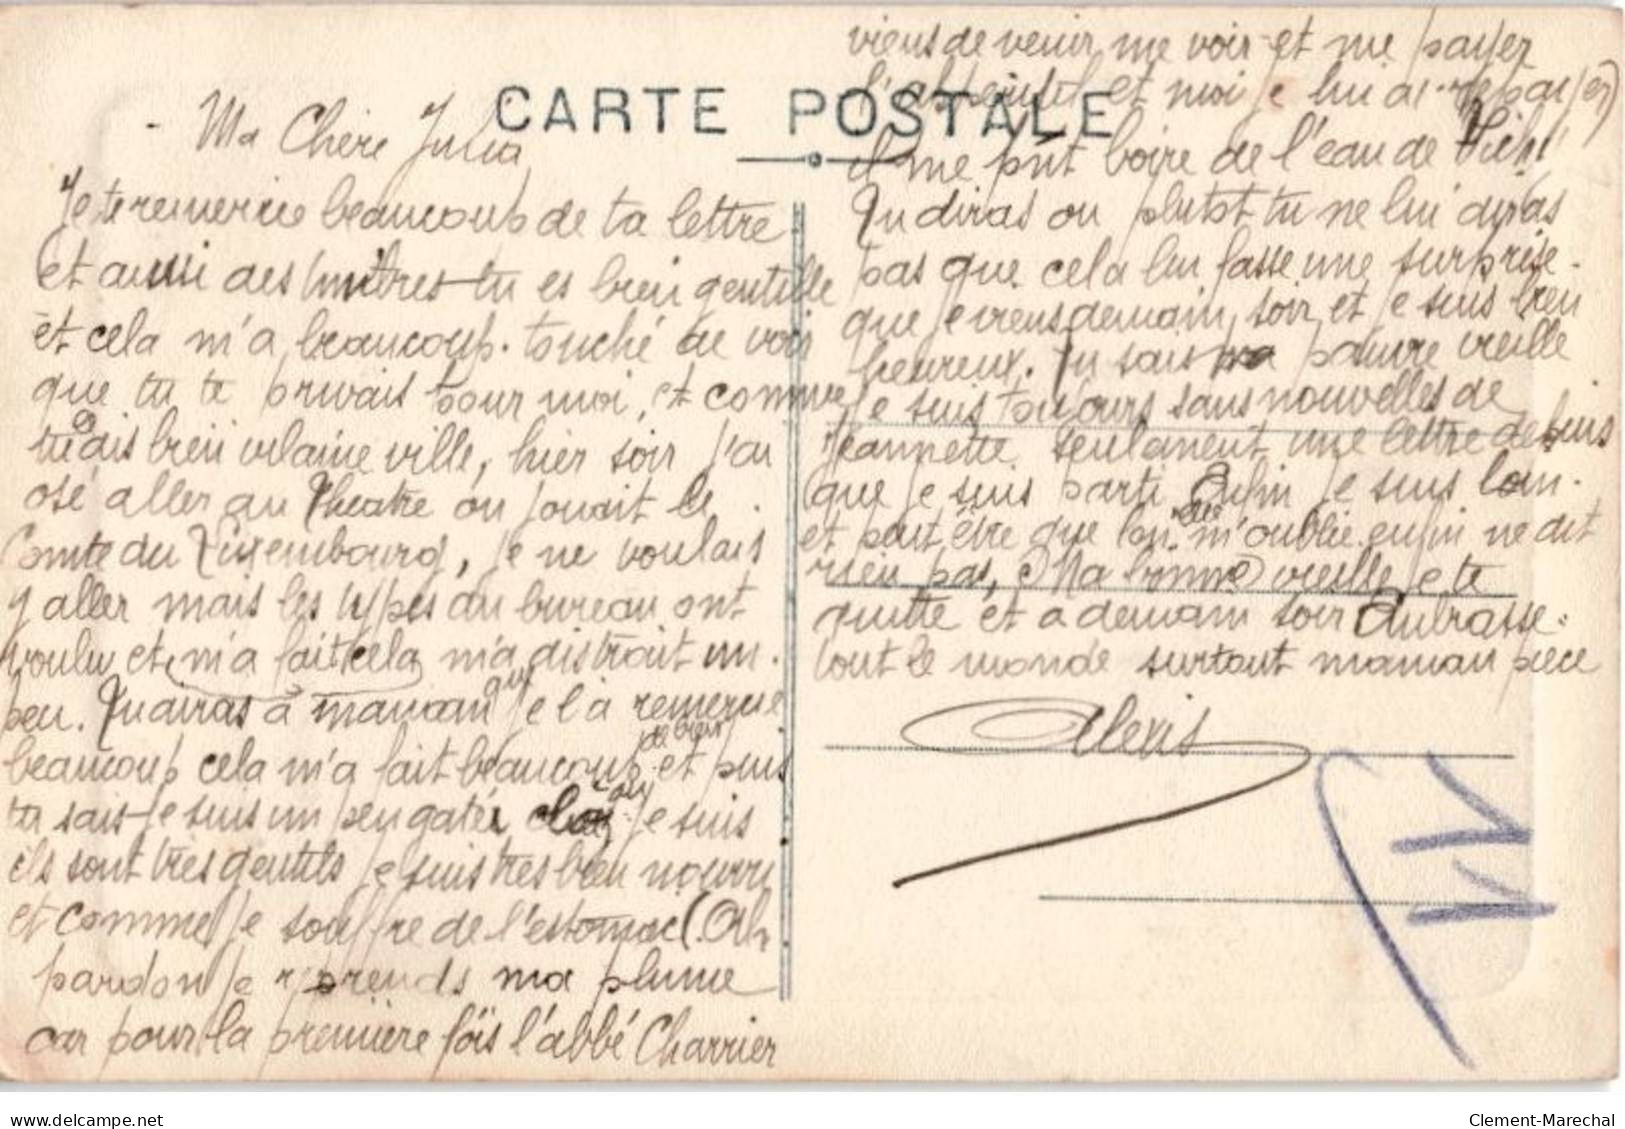 CARTE POSTALE
Ma Chère Julia
Je te remercie beaucoup de ta lettre
et aussi des timbres tu es bien gentille
et cela m'a beaucoup touché de voir
que tu te privais pour moi, et comme
tu dis bien vilaine ville, hier soir j'ai
osé aller au Theatre on jouait le
Comte du Luxembourg, je ne voulais
y aller mais les types du bureau ont
voulu et m'a fait cela m'a distrait un
peu. Tu diras à maman que je la remercie
beaucoup cela m'a fait beaucoup de bien et puis
tu sais je suis un peu gatée je suis
ils sont très gentils je suis très bien nourri
et comme je souffre de l'estomac (Oh
pardon je reprends ma plume
car pour la première fois l'abbé Charrier
viens de venir me voir et me payer
l' et moi je lui ai repayer)
il me fait boire de l'eau de Vichi
Tu diras ou plutot tu ne lui diras
pas que cela lui fasse une surprise
que je viens demain soir et je suis bien
heureux. Tu sais ma pauvre vieille
je suis toujours sans nouvelles de
Jeannette seulement une lettre depuis
que je suis parti enfin je suis loin
et peut être que l'on m'oublie enfin ne dit
rien pas, Ma bonne vieille je te
quitte et a demain soir Embrasse
tout le monde surtout maman
Alexis
delcampe.net
Clement-Marechal